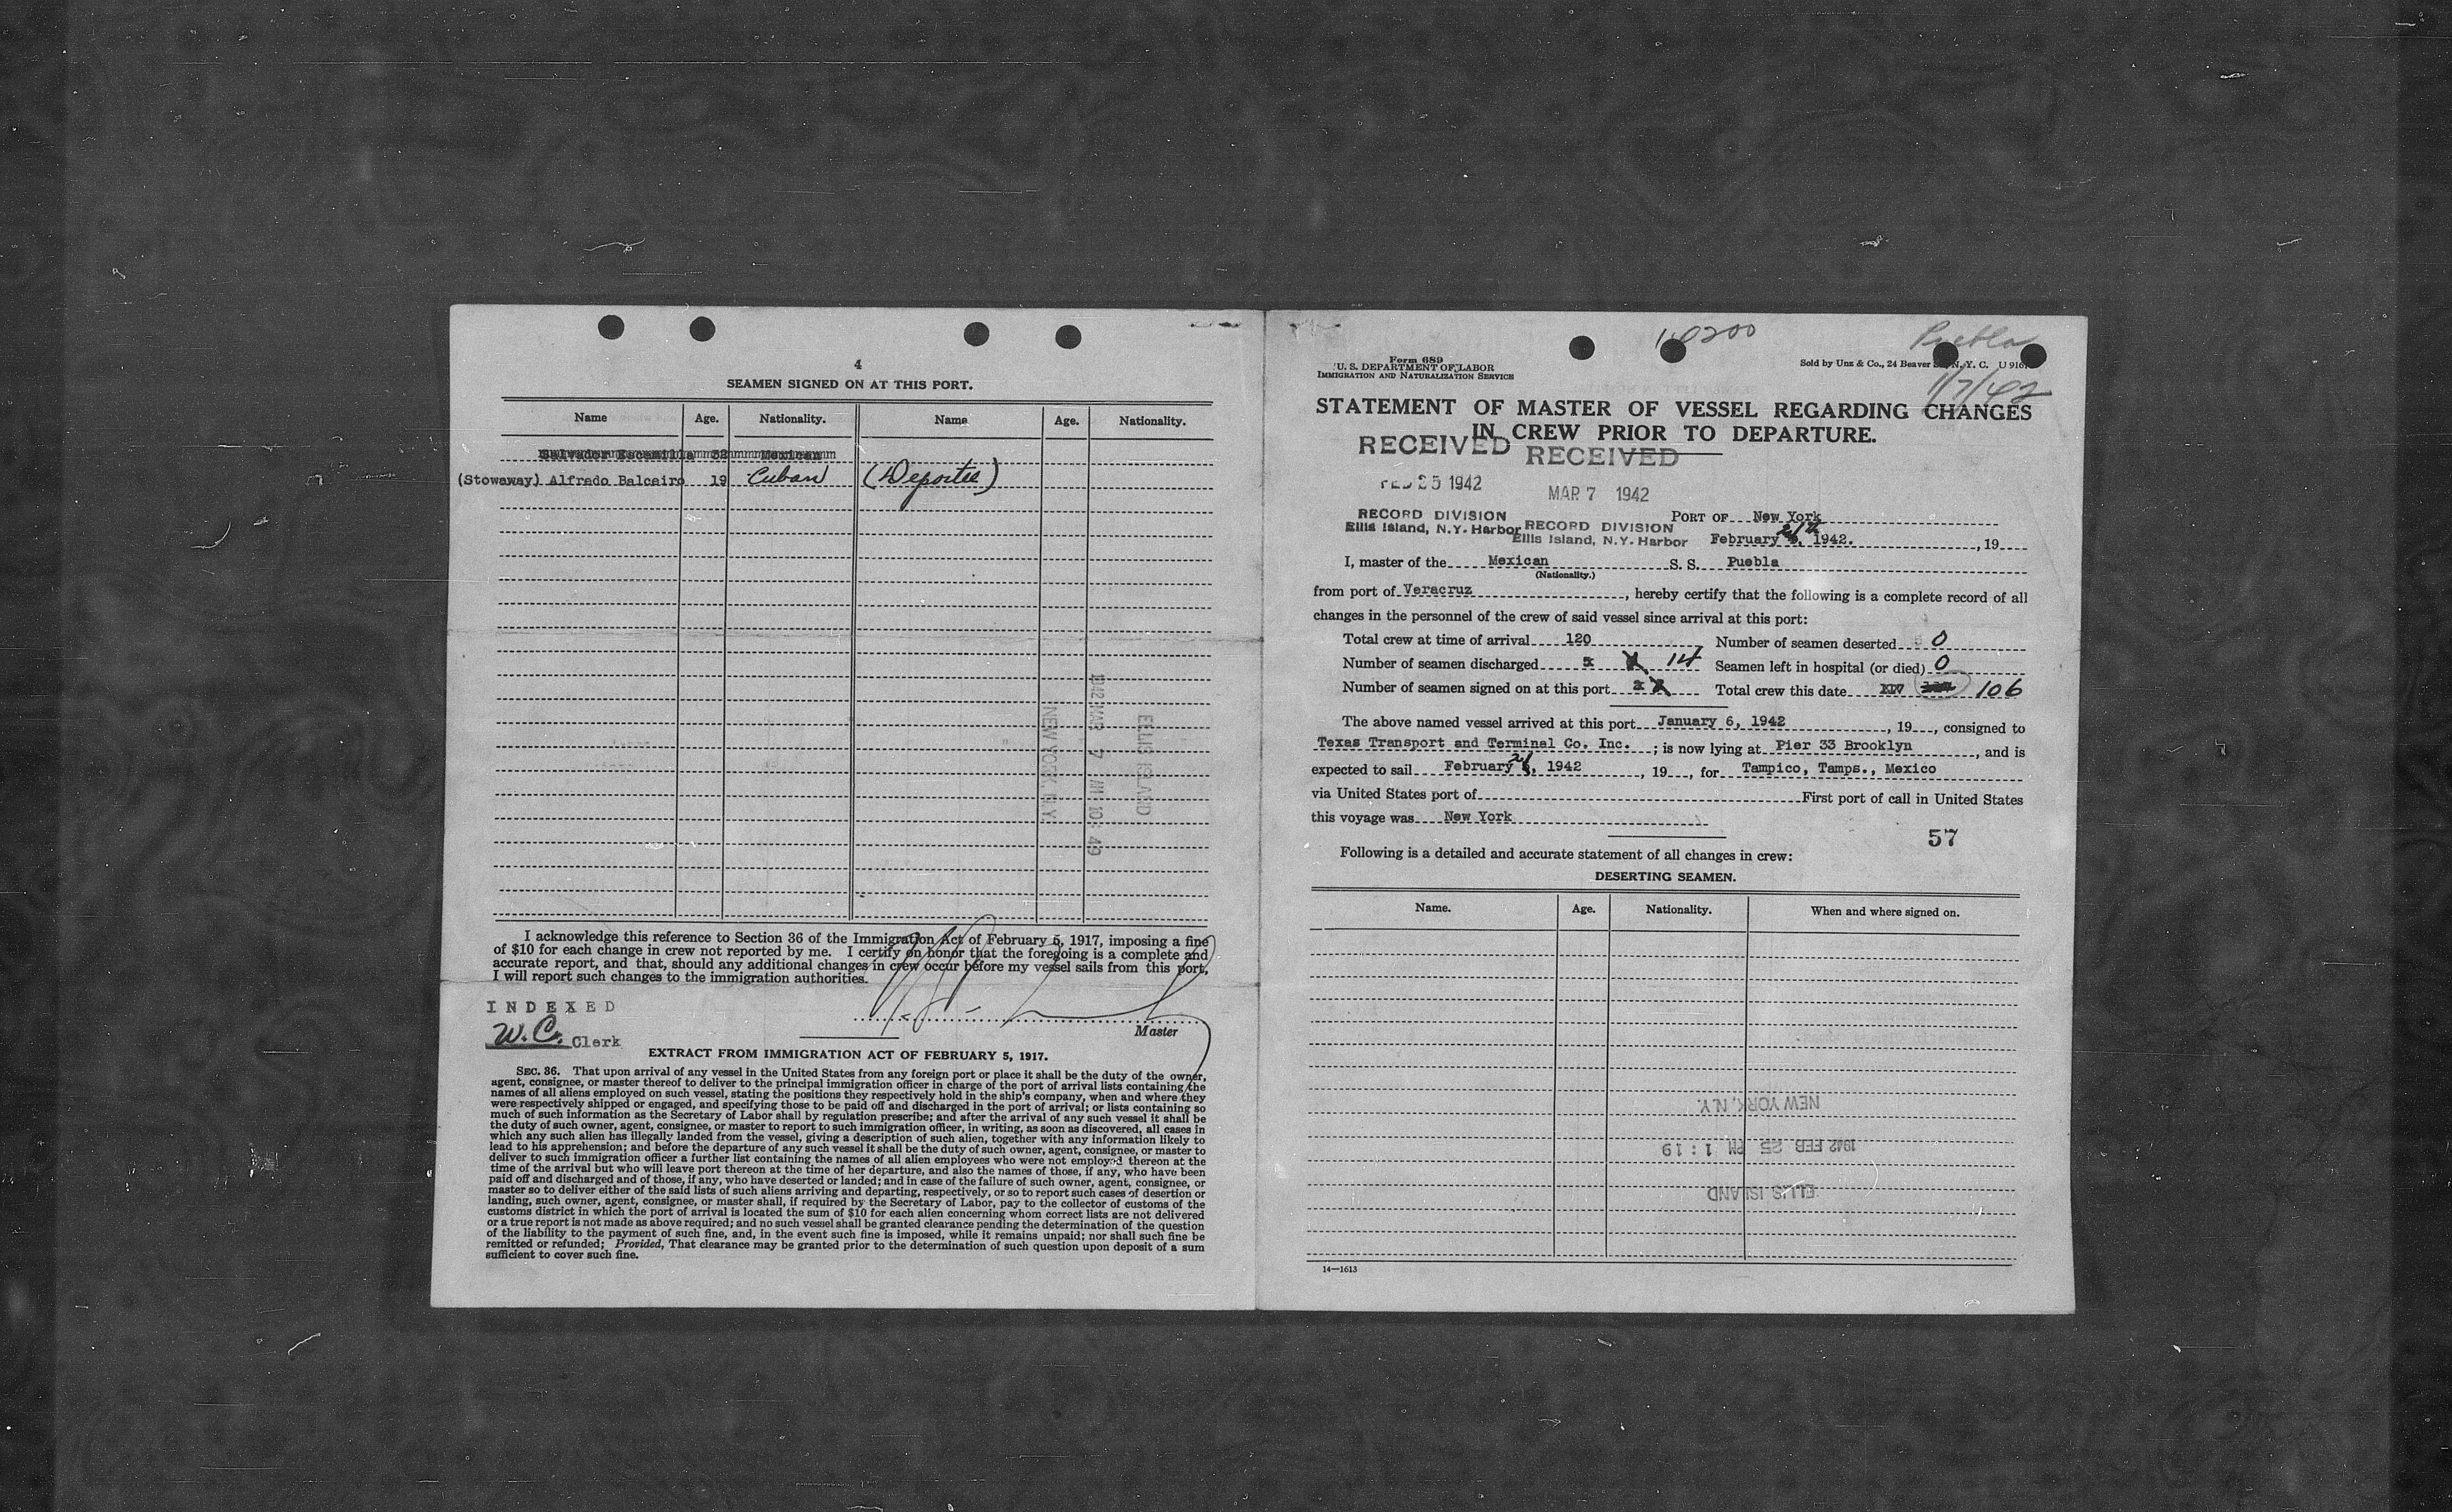 4
SEAMEN SIGNED ON AT THIS PORT.
Name Age. Nationality. Name Age. Nationality.
Salvador Escamilla 32 Mexican
(Stowaway) Alfredo Balceiro 19 Cuban (Deportee)
ELLIS ISLAND
1942 MAR 7 AM 10:49
NEW YORK, N.Y.
I acknowledge this reference to Section 36 of the Immigration Act of February 5, 1917, imposing a fine
of $10 for each change in crew not reported by me. I certify on honor that the foregoing is a complete and
accurate report, and that, should any additional changes in crew occur before my vessel sails from this port,
I will report such changes to the immigration authorities.
INDEXED
W.C. Clerk
Master
EXTRACT FROM IMMIGRATION ACT OF FEBRUARY 5, 1917.
SEC. 36. That upon arrival of any vessel in the United States from any foreign port or place it shall be the duty of the owner,
agent, consignee, or master thereof to deliver to the principal immigration officer in charge of the port of arrival lists containing the
names of all aliens employed on such vessel, stating the positions they respectively hold in the ship's company, when and where they
were respectively shipped or engaged, and specifying those to be paid off and discharged in the port of arrival; or lists containing so
much of such information as the Secretary of Labor shall by regulation prescribe; and after the arrival of any such vessel it shall be
the duty of such owner, agent, consignee, or master to report to such immigration officer, in writing, as soon as discovered, all cases in
which any such alien has illegally landed from the vessel, giving a description of such alien, together with any information likely to
lead to his apprehension; and before the departure of any such vessel it shall be the duty of such owner, agent, consignee, or master to
deliver to such immigration officer a further list containing the names of all alien employees who were not employed thereon at the
time of the arrival but who will leave port thereon at the time of her departure, and also the names of those, if any, who have been
paid off and discharged and of those, if any, who have deserted or landed; and in case of the failure of such owner, agent, consignee, or
master so to deliver either of the said lists of such aliens arriving and departing, respectively, or so to report such cases of desertion or
landing, such owner, agent, consignee, or master shall, if required by the Secretary of Labor, pay to the collector of customs of the
customs district in which the port of arrival is located the sum of $10 for each alien concerning whom correct lists are not delivered
or a true report is not made as above required; and no such vessel shall be granted clearance pending the determination of the question
of the liability to the payment of such fine, and, in the event such fine is imposed, while it remains unpaid; nor shall such fine be
remitted or refunded; Provided, That clearance may be granted prior to the determination of such question upon deposit of a sum
sufficient to cover such fine.
Puebla
1/7/42
Form 689
U. S. DEPARTMENT OF LABOR
IMMIGRATION AND NATURALIZATION SERVICE
Sold by Unz & Co., 24 Beaver N. Y. C. U 916
STATEMENT OF MASTER OF VESSEL REGARDING CHANGES
IN CREW PRIOR TO DEPARTURE.
RECEIVED RECEIVED
FEB 25 1942 MAR 7 1942
RECORD DIVISION
Ellis Island, N.Y. Harbor
RECORD DIVISION
Ellis Island, N.Y. Harbor
PORT OF New York
February 21, 1942. , 19
I, master of the Mexican S. S. Puebla
(Nationality.)
from port of Veracruz , hereby certify that the following is a complete record of all
changes in the personnel of the crew of said vessel since arrival at this port:
Total crew at time of arrival 120 Number of seamen deserted 0
Number of seamen discharged 14 Seamen left in hospital (or died) 0
Number of seamen signed on at this port Total crew this date 106
The above named vessel arrived at this port January 6, 1942 , 19 , consigned to
Texas Transport and Terminal Co. Inc. ; is now lying at Pier 33 Brooklyn , and is
expected to sail February 21, 1942 , 19 , for Tampico, Tamps., Mexico
via United States port of First port of call in United States
this voyage was New York
57
Following is a detailed and accurate statement of all changes in crew:
DESERTING SEAMEN.
Name. Age. Nationality. When and where signed on.
NEW YORK, N.Y.
1942 FEB 25 PM 1:19
ELLIS ISLAND
14—1613